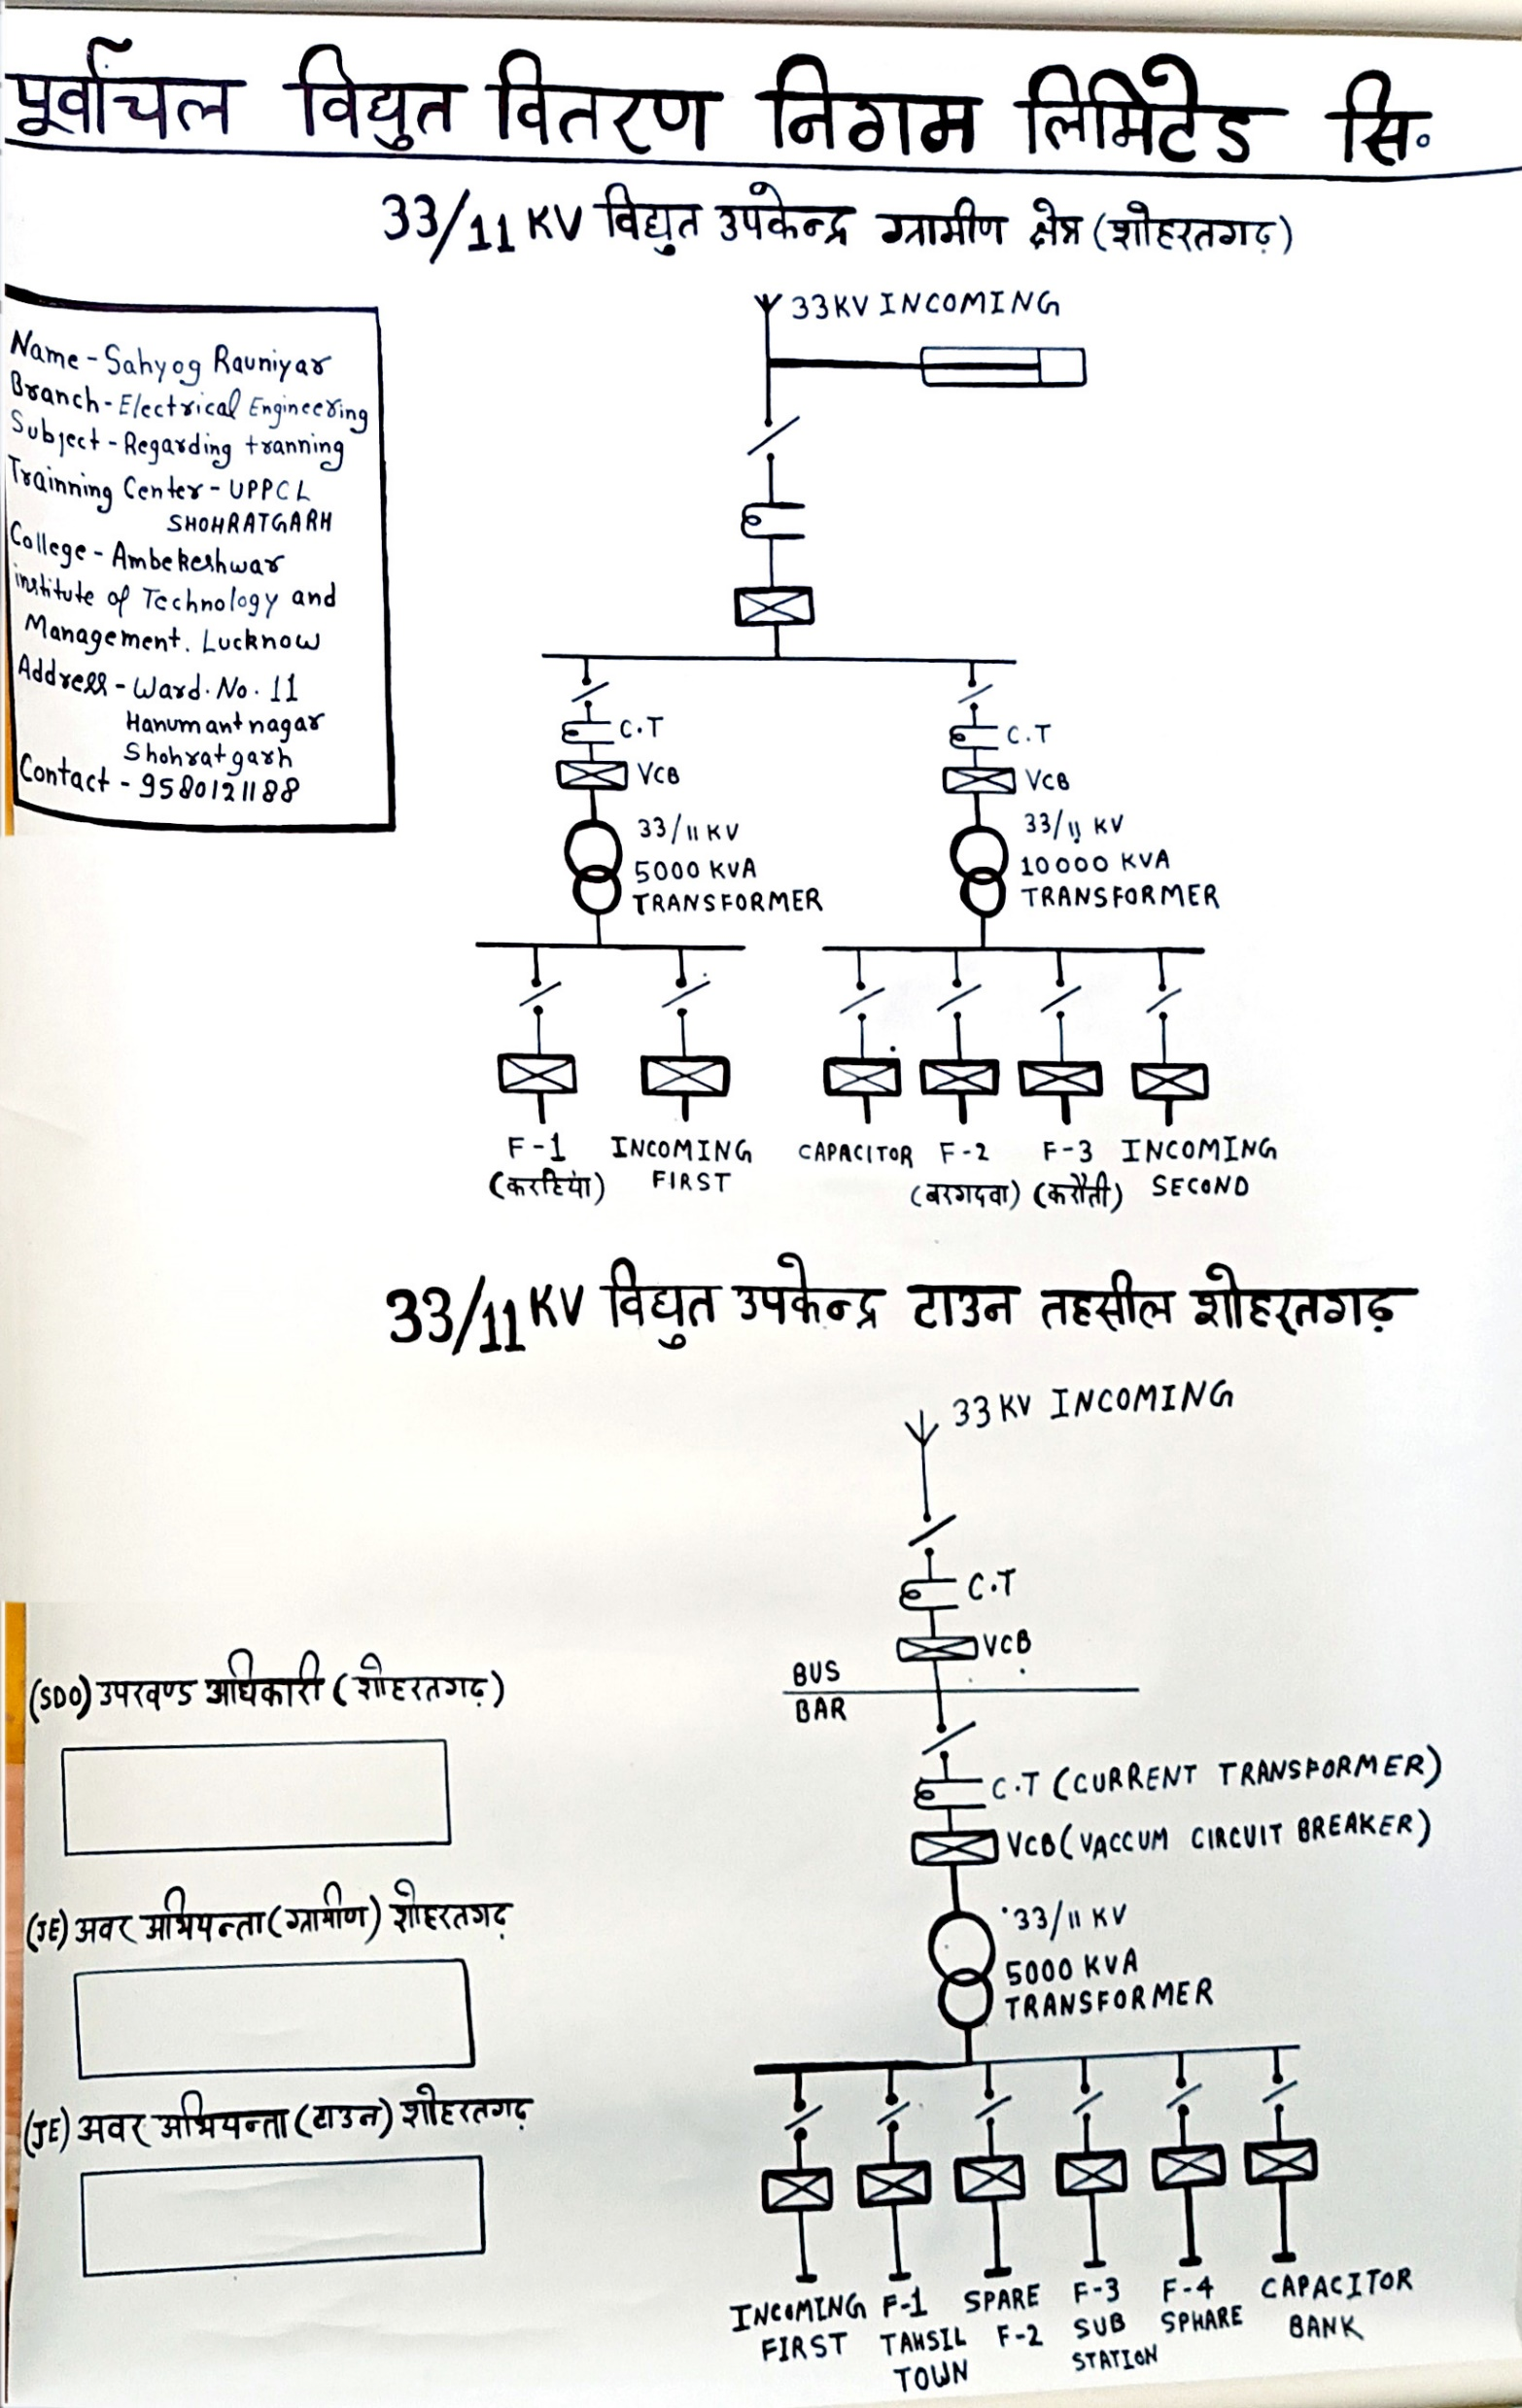 पूर्वांचल विद्युत वितरण निगम लिमिटेड सि.
33/11 KV विद्युत उपकेन्द्र ग्रामीण क्षेत्र (शोहरतगढ़)
Name - Sahyog Rauniyar
Branch - Electrical Engineering
Subject - Regarding tranning
Trainning Center - UPPCL
SHOHRATGARH
College - Ambekeshwar
institute of Technology and
Management. Lucknow
Address - Ward. No. 11
Hanumant nagar
Shohratgarh
Contact - 9580121188
33KV INCOMING
C.T
VCB
33/11 KV
5000 KVA
TRANSFORMER
C.T
VCB
33/11 KV
10000 KVA
TRANSFORMER
F-1
(करहिया)
INCOMING
FIRST
CAPACITOR
F-2
(बरगदवा)
F-3
(करौती)
INCOMING
SECOND
33/11 KV विद्युत उपकेन्द्र टाउन तहसील शोहरतगढ़
33 KV INCOMING
C.T
VCB
BUS
BAR
C.T (CURRENT TRANSFORMER)
VCB (VACCUM CIRCUIT BREAKER)
33/11 KV
5000 KVA
TRANSFORMER
INCOMING
FIRST
F-1
TAHSIL
TOWN
SPARE
F-2
F-3
SUB
STATION
F-4
SPHARE
CAPACITOR
BANK
(SDO) उपखण्ड अधिकारी (शोहरतगढ़)
(JE) अवर अभियन्ता (ग्रामीण) शोहरतगढ़
(JE) अवर अभियन्ता (टाउन) शोहरतगढ़